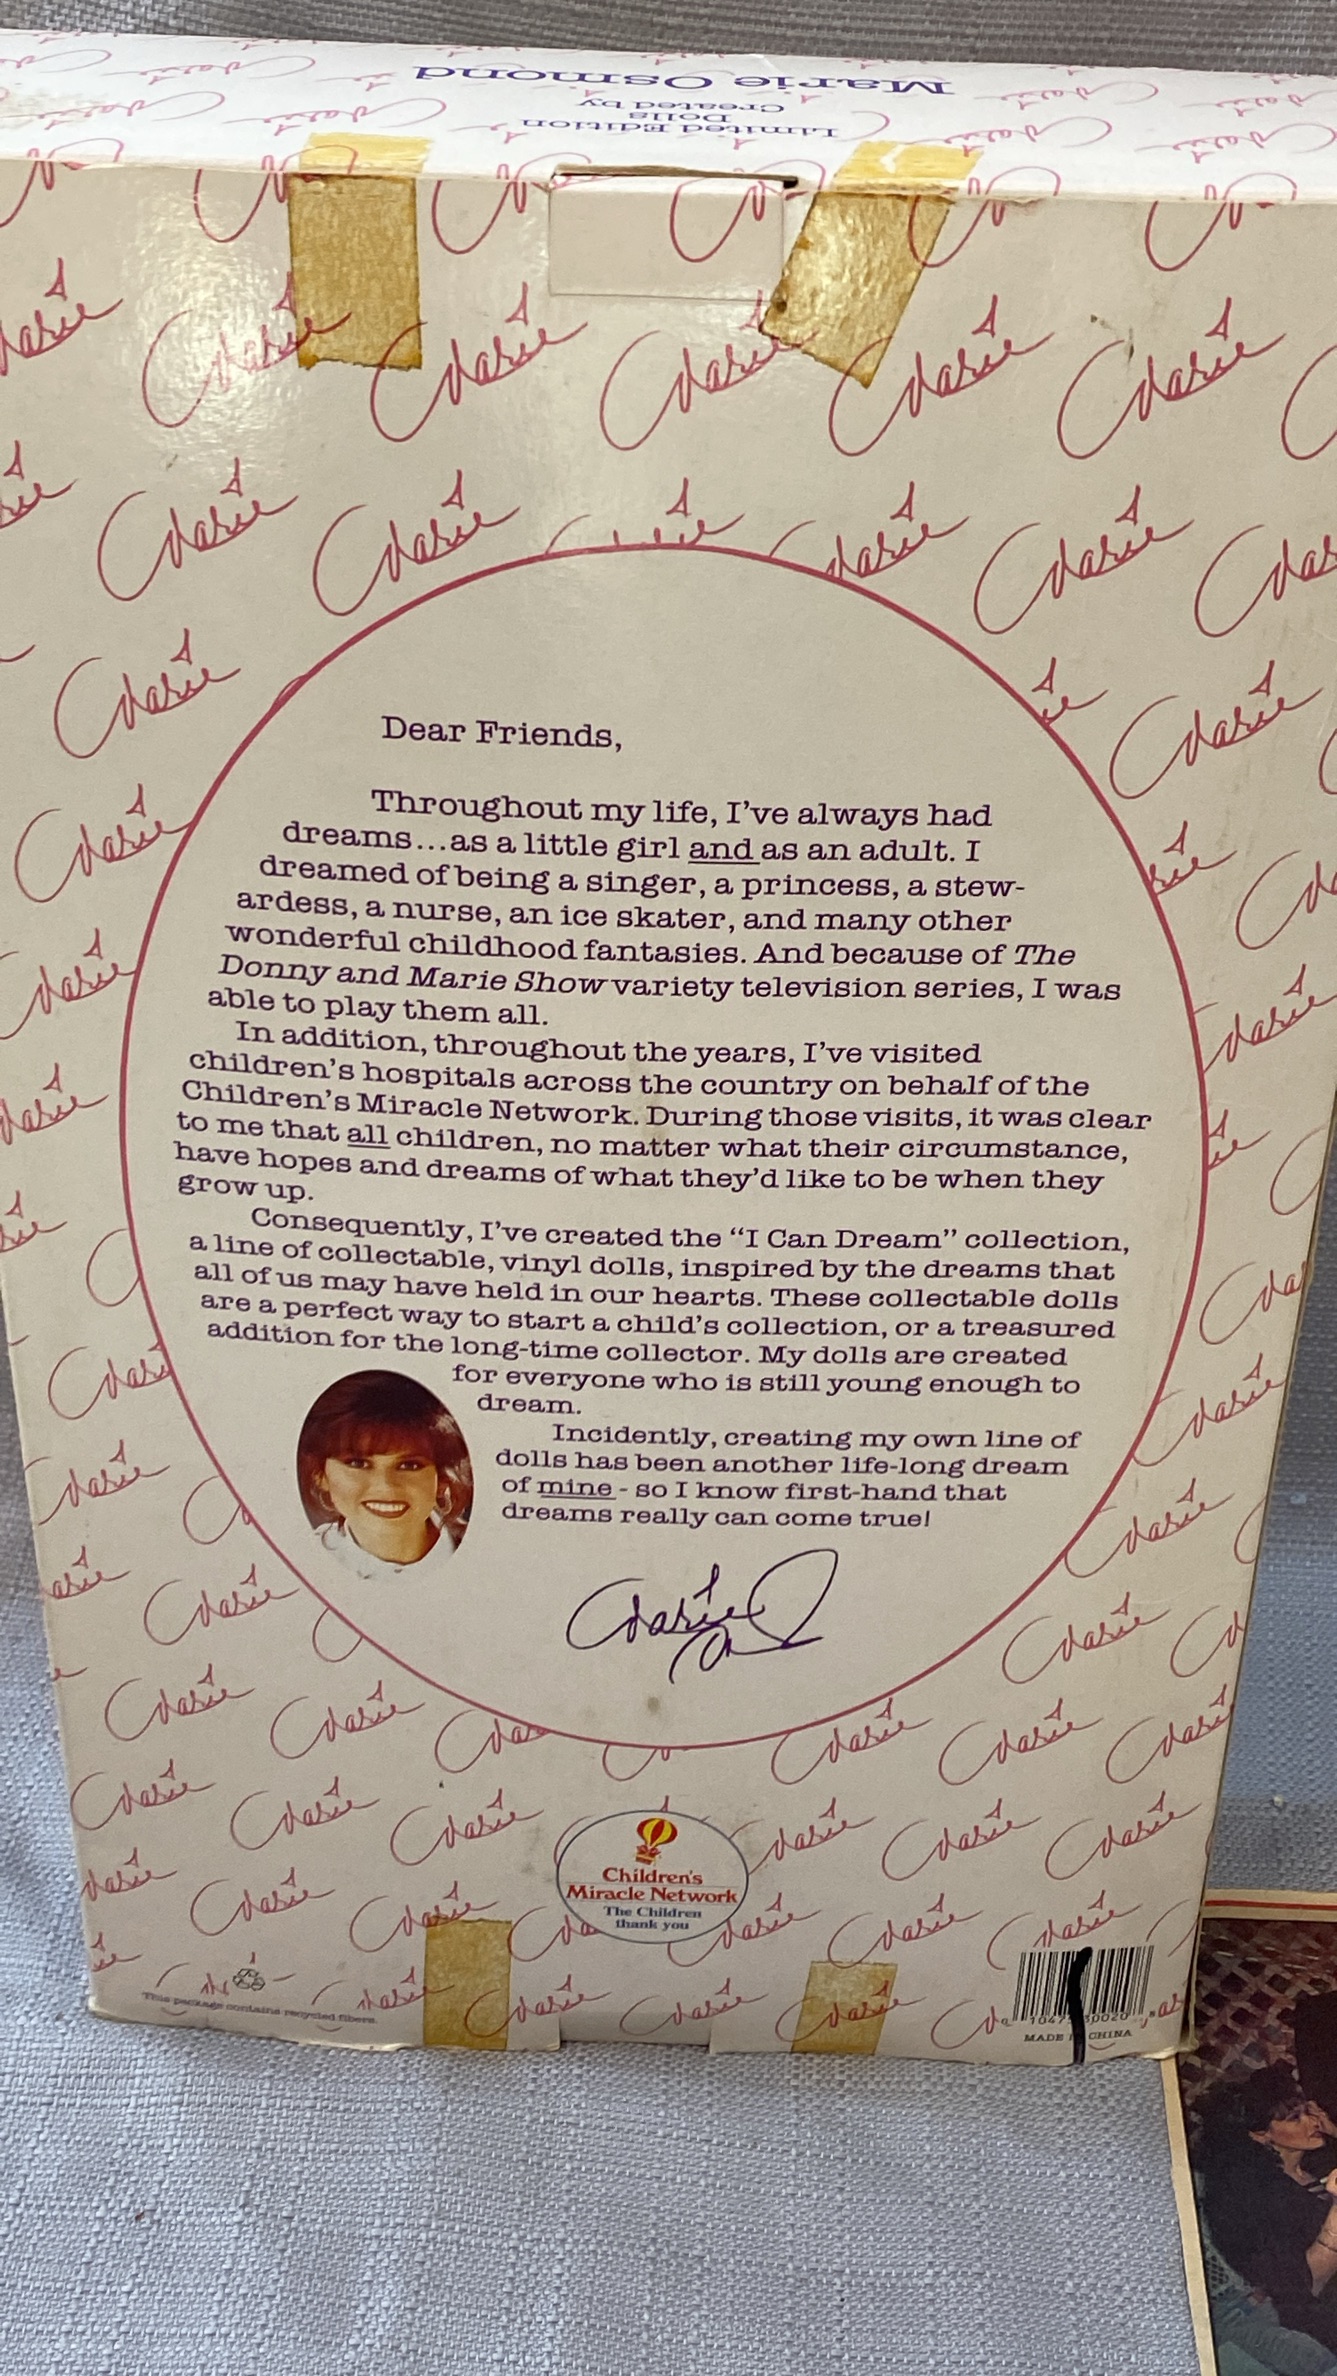 Marie Osmond
Created by
Dolls
Limited Edition
Dear Friends,
Throughout my life, I've always had
dreams...as a little girl and as an adult. I
dreamed of being a singer, a princess, a stew-
ardess, a nurse, an ice skater, and many other
wonderful childhood fantasies. And because of The
Donny and Marie Show variety television series, I was
able to play them all.
In addition, throughout the years, I've visited
children's hospitals across the country on behalf of the
Children's Miracle Network. During those visits, it was clear
to me that all children, no matter what their circumstance,
have hopes and dreams of what they'd like to be when they
grow up.
Consequently, I've created the "I Can Dream" collection,
a line of collectable, vinyl dolls, inspired by the dreams that
all of us may have held in our hearts. These collectable dolls
are a perfect way to start a child's collection, or a treasured
addition for the long-time collector. My dolls are created
for everyone who is still young enough to
dream.
Incidently, creating my own line of
dolls has been another life-long dream
of mine - so I know first-hand that
dreams really can come true!
Marie
Children's
Miracle Network
The Children
thank you
This package contains recycled fibers.
MADE CHINA